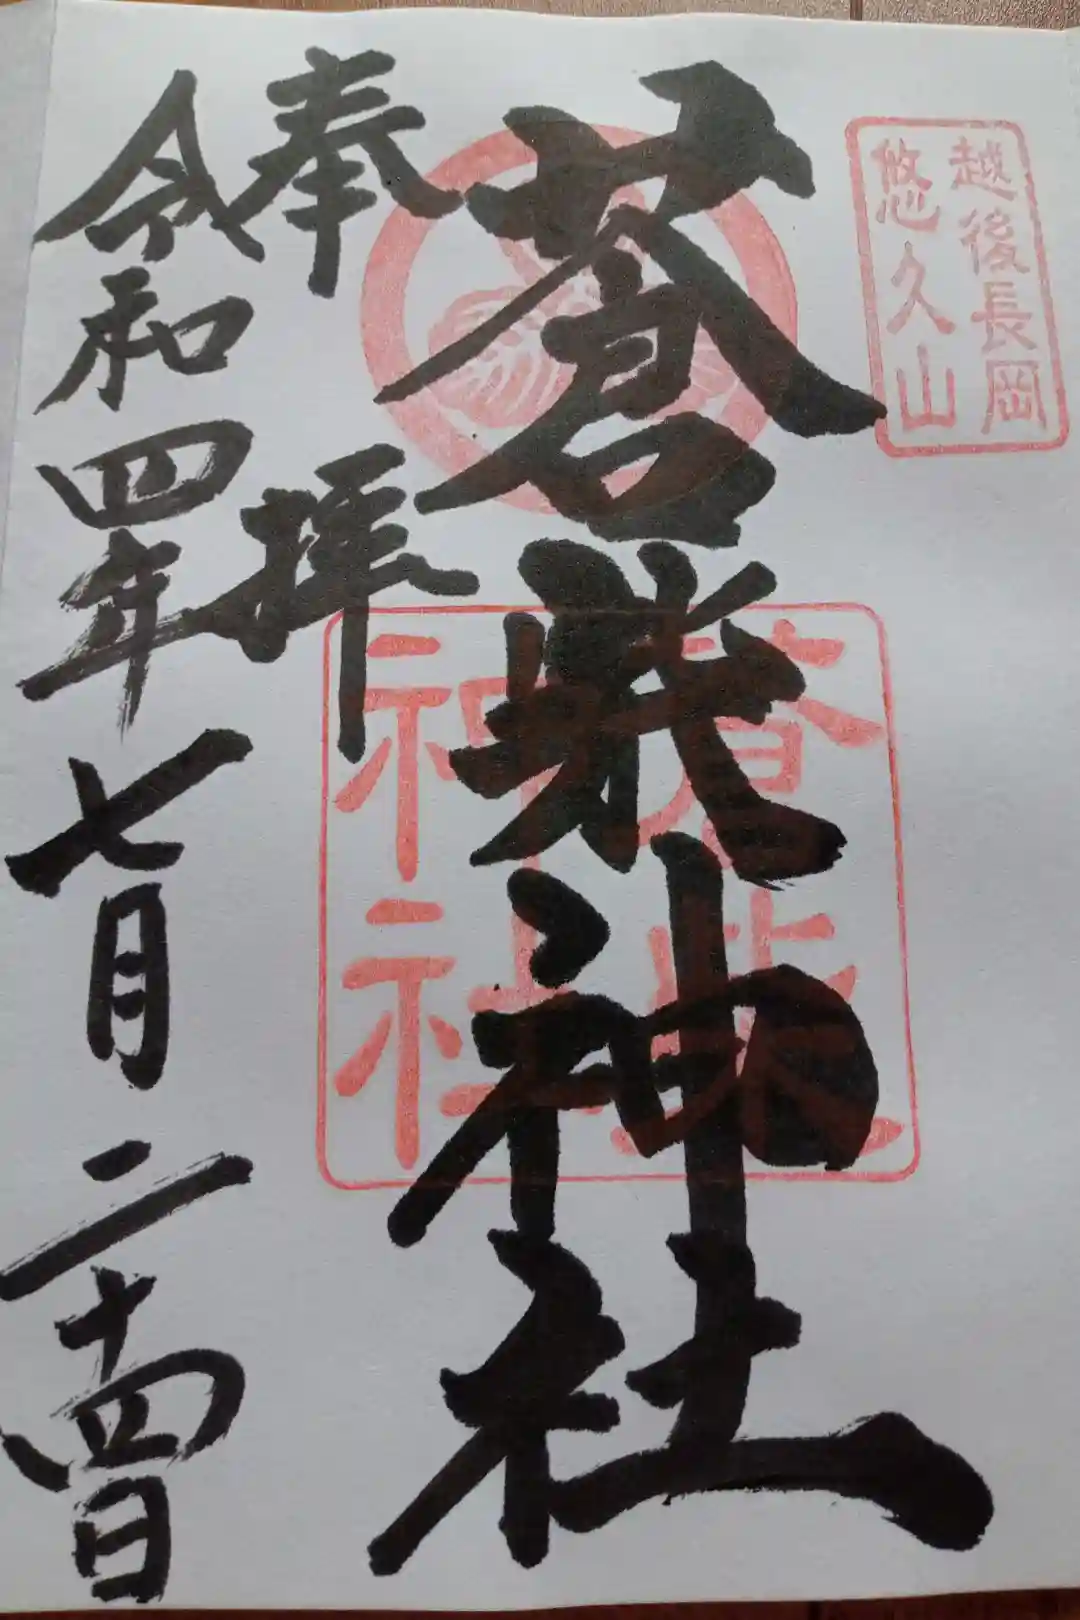 越後長岡
悠久山
蒼柴神社
蒼柴神社
奉拝
令和四年七月二十四日